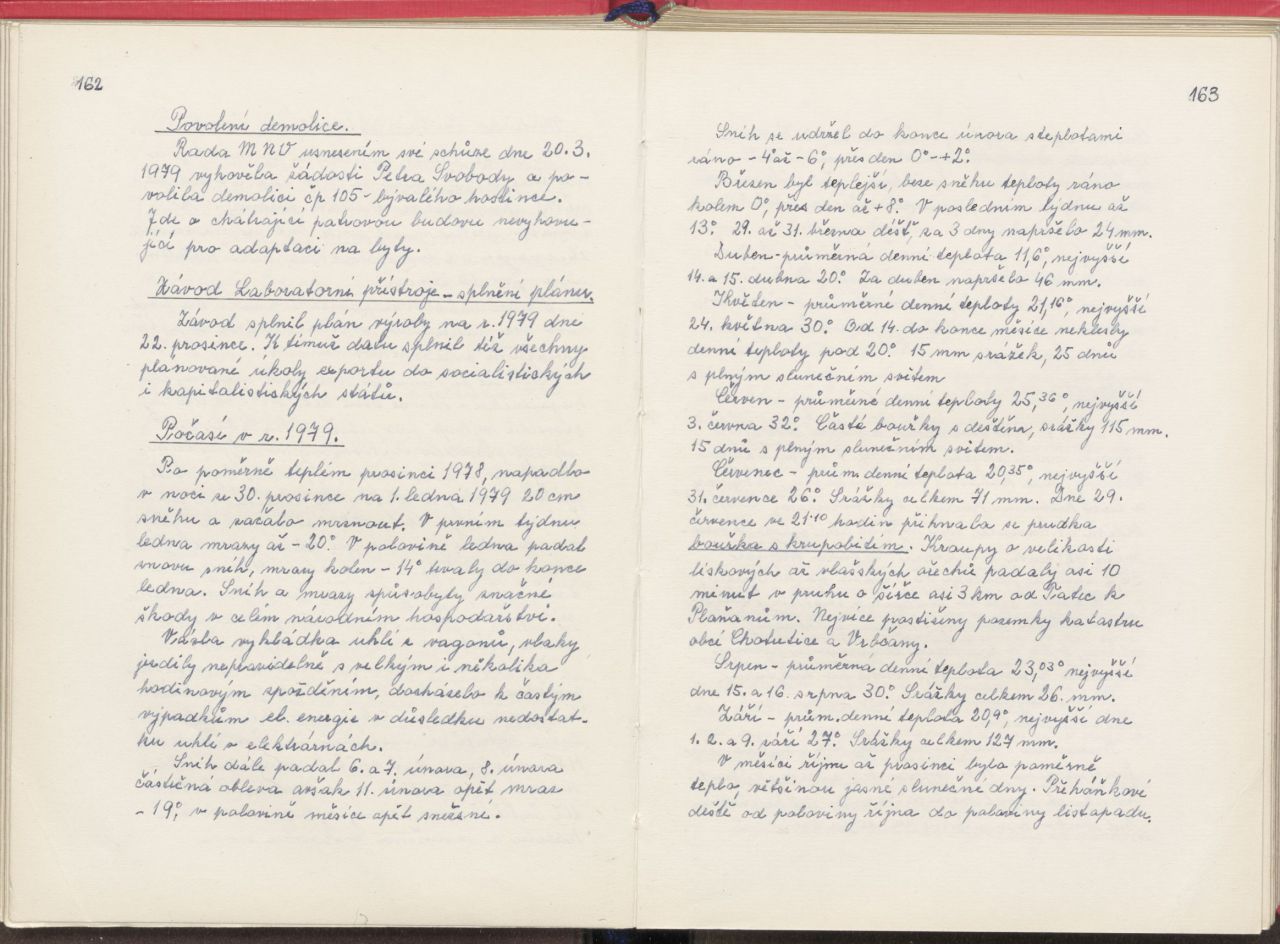 162
Povolení demolice.
Rada MNV usnesením své schůze dne 20.3.
1979 vyhověla žádosti Petra Svobody a po-
volila demolici čp 105 - bývalého hostince.
Jde o chátrající patrovou budovu nevyhovu-
jící pro adaptaci na byty.
Závod Laboratorní přístroje - splnění plánu.
Závod splnil plán výroby na r. 1979 dne
22. prosince. K témuž datu splnil též všechny
plánované úkoly exportu do socialistických
i kapitalistických států.
Počasí v r. 1979.
Po poměrně teplém prosinci 1978, napadlo
v noci ze 30. prosince na 1. ledna 1979 20 cm
sněhu a začalo mrznout. V prvním týdnu
ledna mrazy až -20°. V polovině ledna padal
znovu sníh, mrazy kolem -14° trvaly do konce
ledna. Sníh a mrazy způsobyly značné
škody v celém národním hospodářství.
Vázla vykládka uhlí z vagonů, vlaky
jezdily nepravidelně s velkým i několika
hodinovým zpožděním, docházelo k častým
výpadkům el. energie v důsledku nedostat-
ku uhlí v elektrárnách.
Sníh dále padal 6. a 7. února, 8. února
částečná obleva avšak 11. února opět mraz
-19°, v polovině měsíce opět sněžné.
163
Sníh se udržel do konce února s teplotami
ráno -4° až -6°, přes den 0° - +2°.
Březen byl teplejší, beze sněhu teploty ráno
kolem 0°, přes den až +8°. V posledním týdnu až
13°. 29. až 31. března déšť, za 3 dny napršelo 24 mm.
Duben - průměrná denní teplota 11,6°, nejvyšší
14. a 15. dubna 20°. Za duben napršelo 46 mm.
Květen - průměrné denní teploty 21,16°, nejvyšší
24. května 30°. Od 14. do konce měsíce neklesly
denní teploty pod 20°. 15 mm srážek, 25 dnů
s plným slunečním svitem
Červen - průměrné denní teploty 25,36°, nejvyšší
3. června 32°. Časté bouřky s deštěm, srážky 115 mm.
15 dnů s plným slunečním svitem.
Červenec - prům. denní teplota 20,35°, nejvyšší
31. července 26°. Srážky celkem 71 mm. Dne 29.
července ve 21.10 hodin přihnala se prudká
bouřka s krupobitím. Kroupy o velikosti
lískových až vlašských ořechů padaly asi 10
minut v pruhu o šířce asi 3 km od Tatec k
Plaňanům. Nejvíce postiženy pozemky katastru
obcí Chotutice a Vrbčany.
Srpen - průměrná denní teplota 23,03° nejvyšší
dne 15. a 16. srpna 30°. Srážky celkem 26 mm.
Září - prům. denní teplota 20,9°, nejvyšší dne
1. 2. a 9. září 27°. Srážky celkem 127 mm.
V měsíci říjnu až prosinci bylo poměrně
teplo, většinou jasné slunečné dny. Přeháňkové
deště od poloviny října do poloviny listopadu.